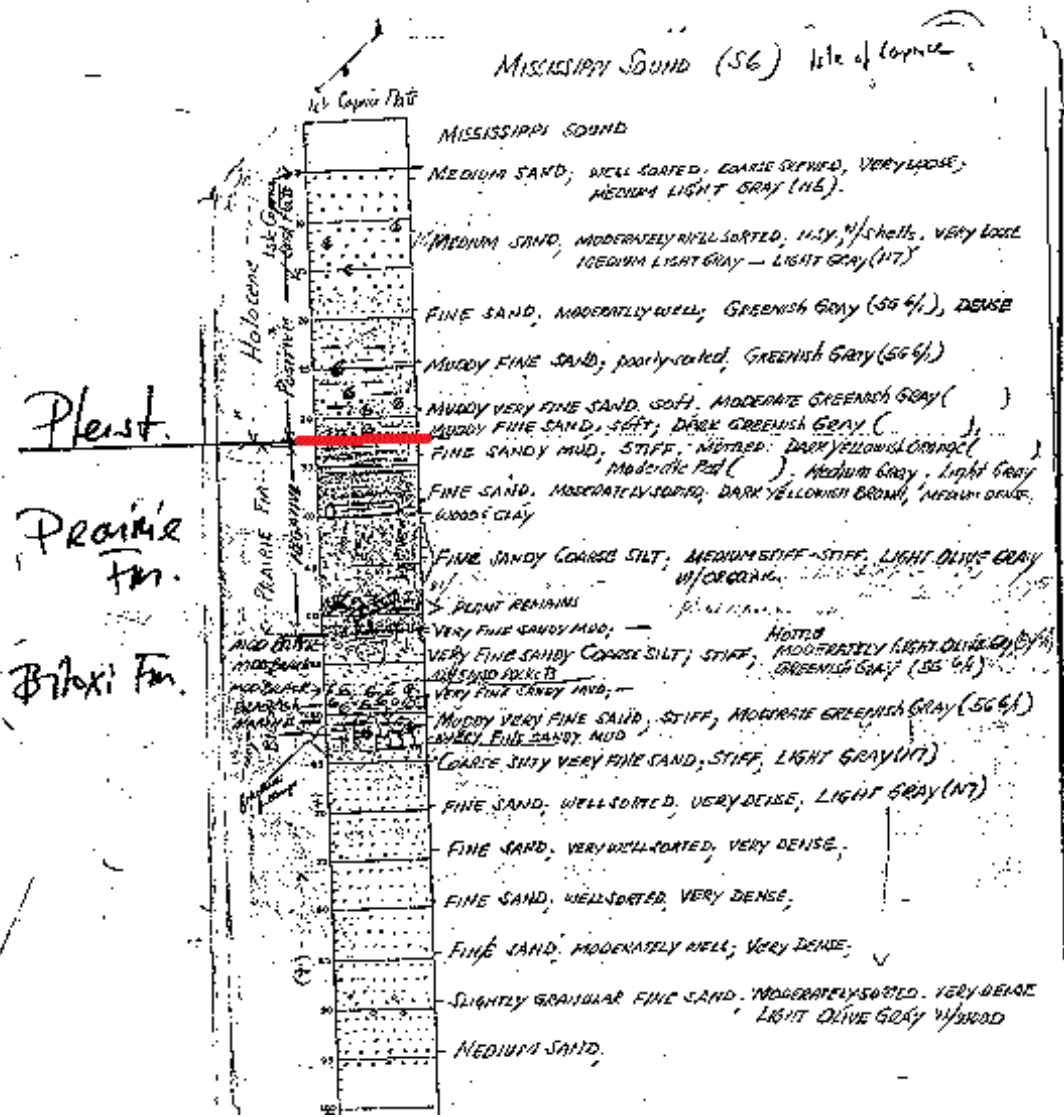 MISSISSIPPI SOUND (S6) Isle of Caprice
MISSISSIPPI SOUND
MEDIUM SAND; WELL SORTED, COARSE SKEWED, VERY LOOSE;
MEDIUM LIGHT GRAY (N6).
MEDIUM SAND, MODERATELY WELL SORTED, W/shells, VERY LOOSE
MEDIUM LIGHT GRAY — LIGHT GRAY (N7)
FINE SAND, MODERATLY WELL; GREENISH GRAY (5G 6/1), DENSE
MUDDY FINE SAND; poorly-sorted, GREENISH GRAY (5G 6/1)
MUDDY VERY FINE SAND, SOFT, MODERATE GREENISH GRAY ( )
MUDDY FINE SAND, SOFT; DARK GREENISH GRAY ( ),
Pleist.
FINE SANDY MUD, STIFF, MOTTLED: DARK YELLOWISH ORANGE ( )
Moderate Red ( ) Medium Gray, Light Gray
FINE SAND, MODERATELY SORTED, DARK YELLOWISH BROWN, MEDIUM DENSE,
WOOD & CLAY
Prairie
Fm.
FINE SANDY COARSE SILT; MEDIUM STIFF-STIFF, LIGHT OLIVE GRAY
W/ORGANIC
PLANT REMAINS
VERY FINE SANDY MUD; —
MOTTLED
VERY FINE SANDY COARSE SILT; STIFF, MODERATELY LIGHT OLIVE GRAY
GREENISH GRAY (5G 6/1)
Biloxi Fm.
VERY FINE SANDY MUD; —
MUDDY VERY FINE SAND, STIFF, MODERATE GREENISH GRAY (5G 6/1)
VERY FINE SANDY MUD
COARSE SILTY VERY FINE SAND; STIFF, LIGHT GRAY (N7)
FINE SAND, WELL SORTED, VERY DENSE, LIGHT GRAY (N7)
FINE SAND, VERY WELL SORTED, VERY DENSE,
FINE SAND, WELL SORTED, VERY DENSE,
FINE SAND, MODERATELY WELL; VERY DENSE,
SLIGHTLY GRANULAR FINE SAND, MODERATELY SORTED, VERY DENSE
LIGHT OLIVE GRAY W/WOOD
MEDIUM SAND,
Holocene
PRAIRIE Fm.
NEGATIVE
POSITIVE